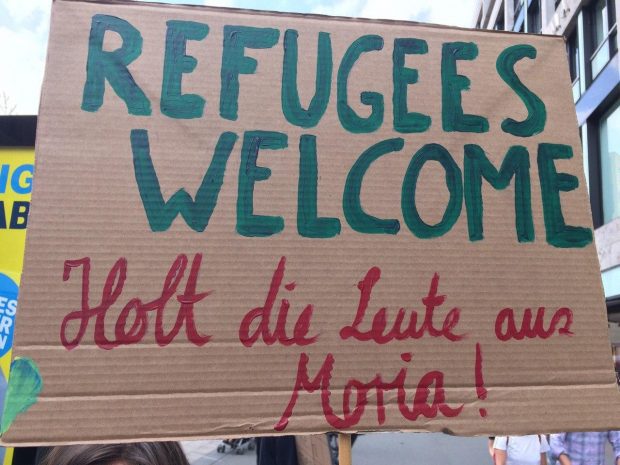 REFUGEES
WELCOME
Holt die Leute aus
Moria!